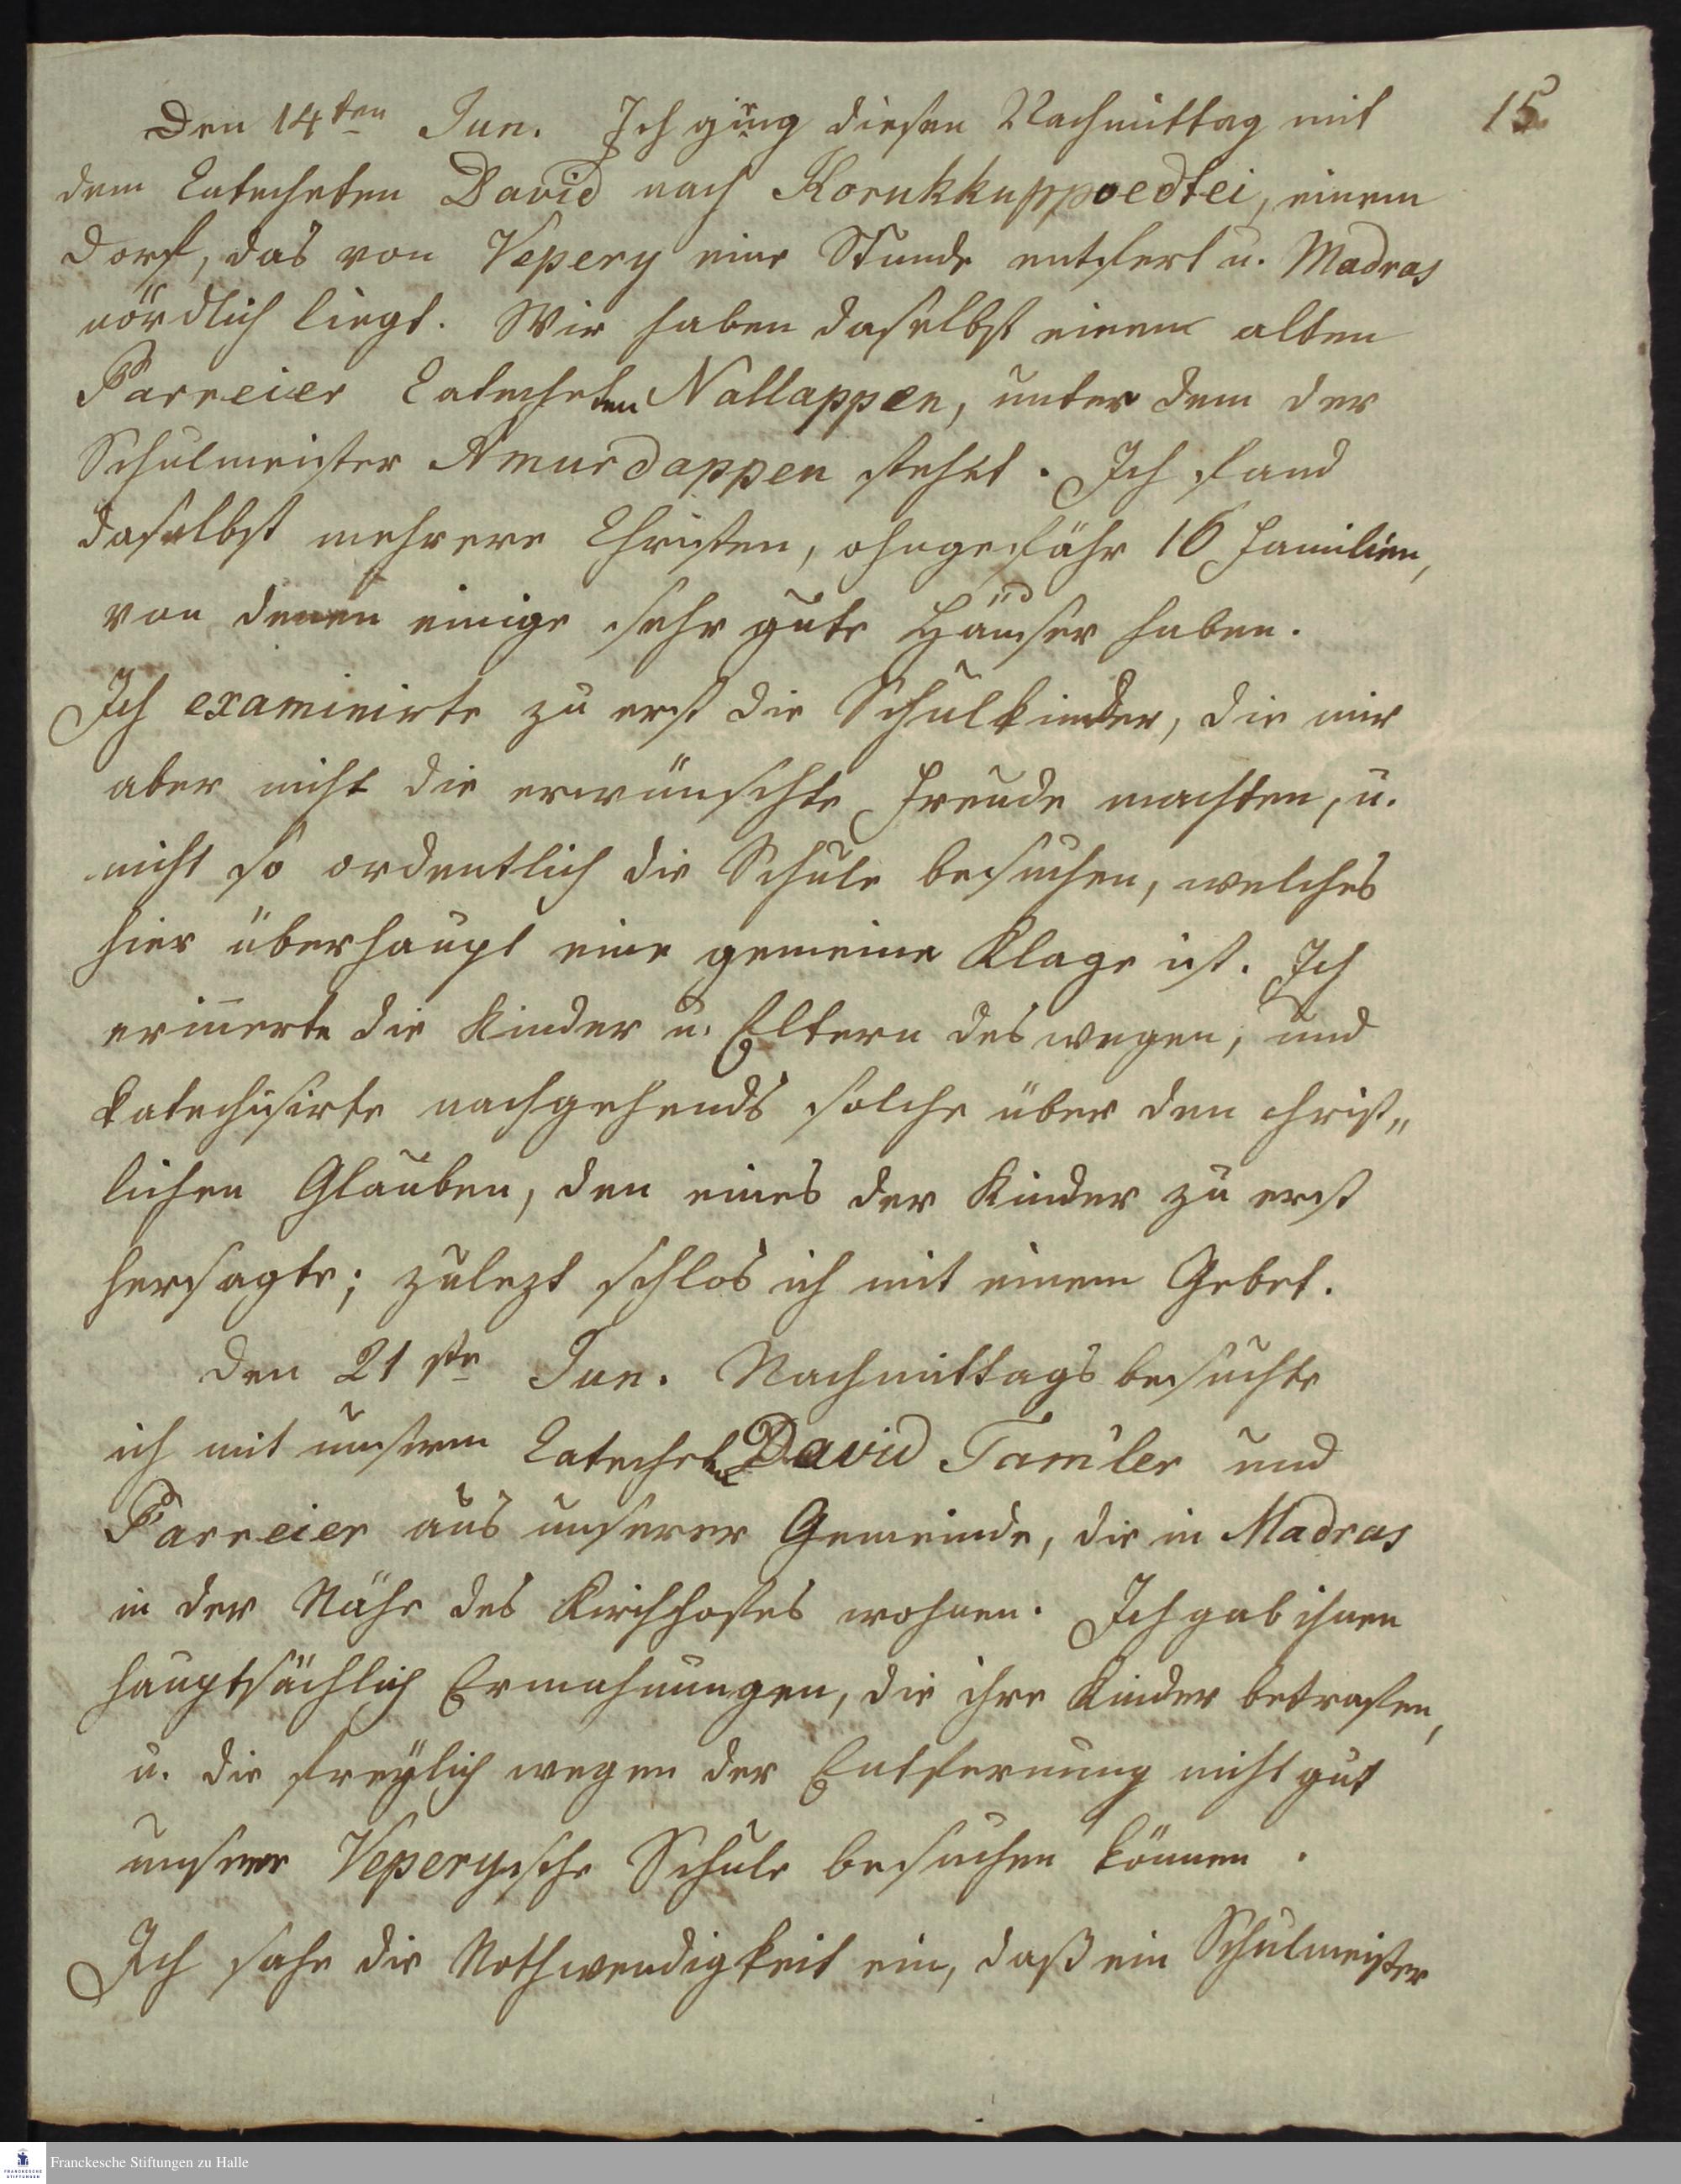 15.
Den 14ten Jun. Ich ging diesen Nachmittag mit
dem Catecheten David nach Korukkuppoedtei, einem
Dorf, das von Vepery eine Stunde entfert u. Madras
nördlich liegt. Wir haben daselbst einen alten
Parreier Catecheten Nallappen, unter dem der
Schulmeister Amurdappen stehet. Ich fand
daselbst mehrere Christen, ohngefähr 16 Familien,
von denen einige sehr gute Häuser haben.
Ich examinirte zu erst die Schulkinder, die mir
aber nicht die erwünschte Freude machten, u.
nicht so ordentlich die Schule besuchen, welches
hier überhaupt eine gemeine Klage ist. Ich
erin̄erte die Kinder u. Eltern deswegen, und
katechisirte nachgehends solche über den christ„
lichen Glauben, den eines der Kinder zu erst
hersagte; zulezt schlos ich mit einem Gebet.
Den 21ste Jun. Nachmittags besuchte
ich mit unserm Catecheten David Tamuler und
Parreier aus unserer Gemeinde, die in Madras
in der Nähe des Kirchhofes wohnen. Ich gab ihnen
hauptsächlich Ermahnungen, die ihre Kinder betrafen,
u. die freÿlich wegen der Entfernung nicht gut
unsere Veperysche Schule besuchen können.
Ich sahe die Nothwendigkeit ein, daß ein Schulmeister
Franckesche Stiftungen zu Halle
FRANCKESCHE
STIFTUNGEN